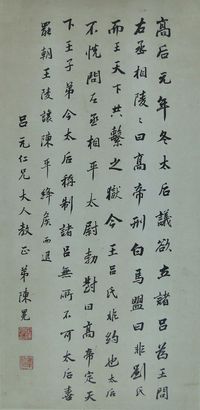 高后元年冬太后議欲立諸呂爲王問
右丞相陵々曰高帝刑白馬盟曰非劉氏
而王天下共繫之獄今王呂氏非約也太后
不悦問左丞相平太尉勃對曰高帝定天
下王子弟今太后稱制諸呂無所不可太后喜
罷朝王陵讓陳平絳矦而退
呂元仁兄大人教正 弟陳冕